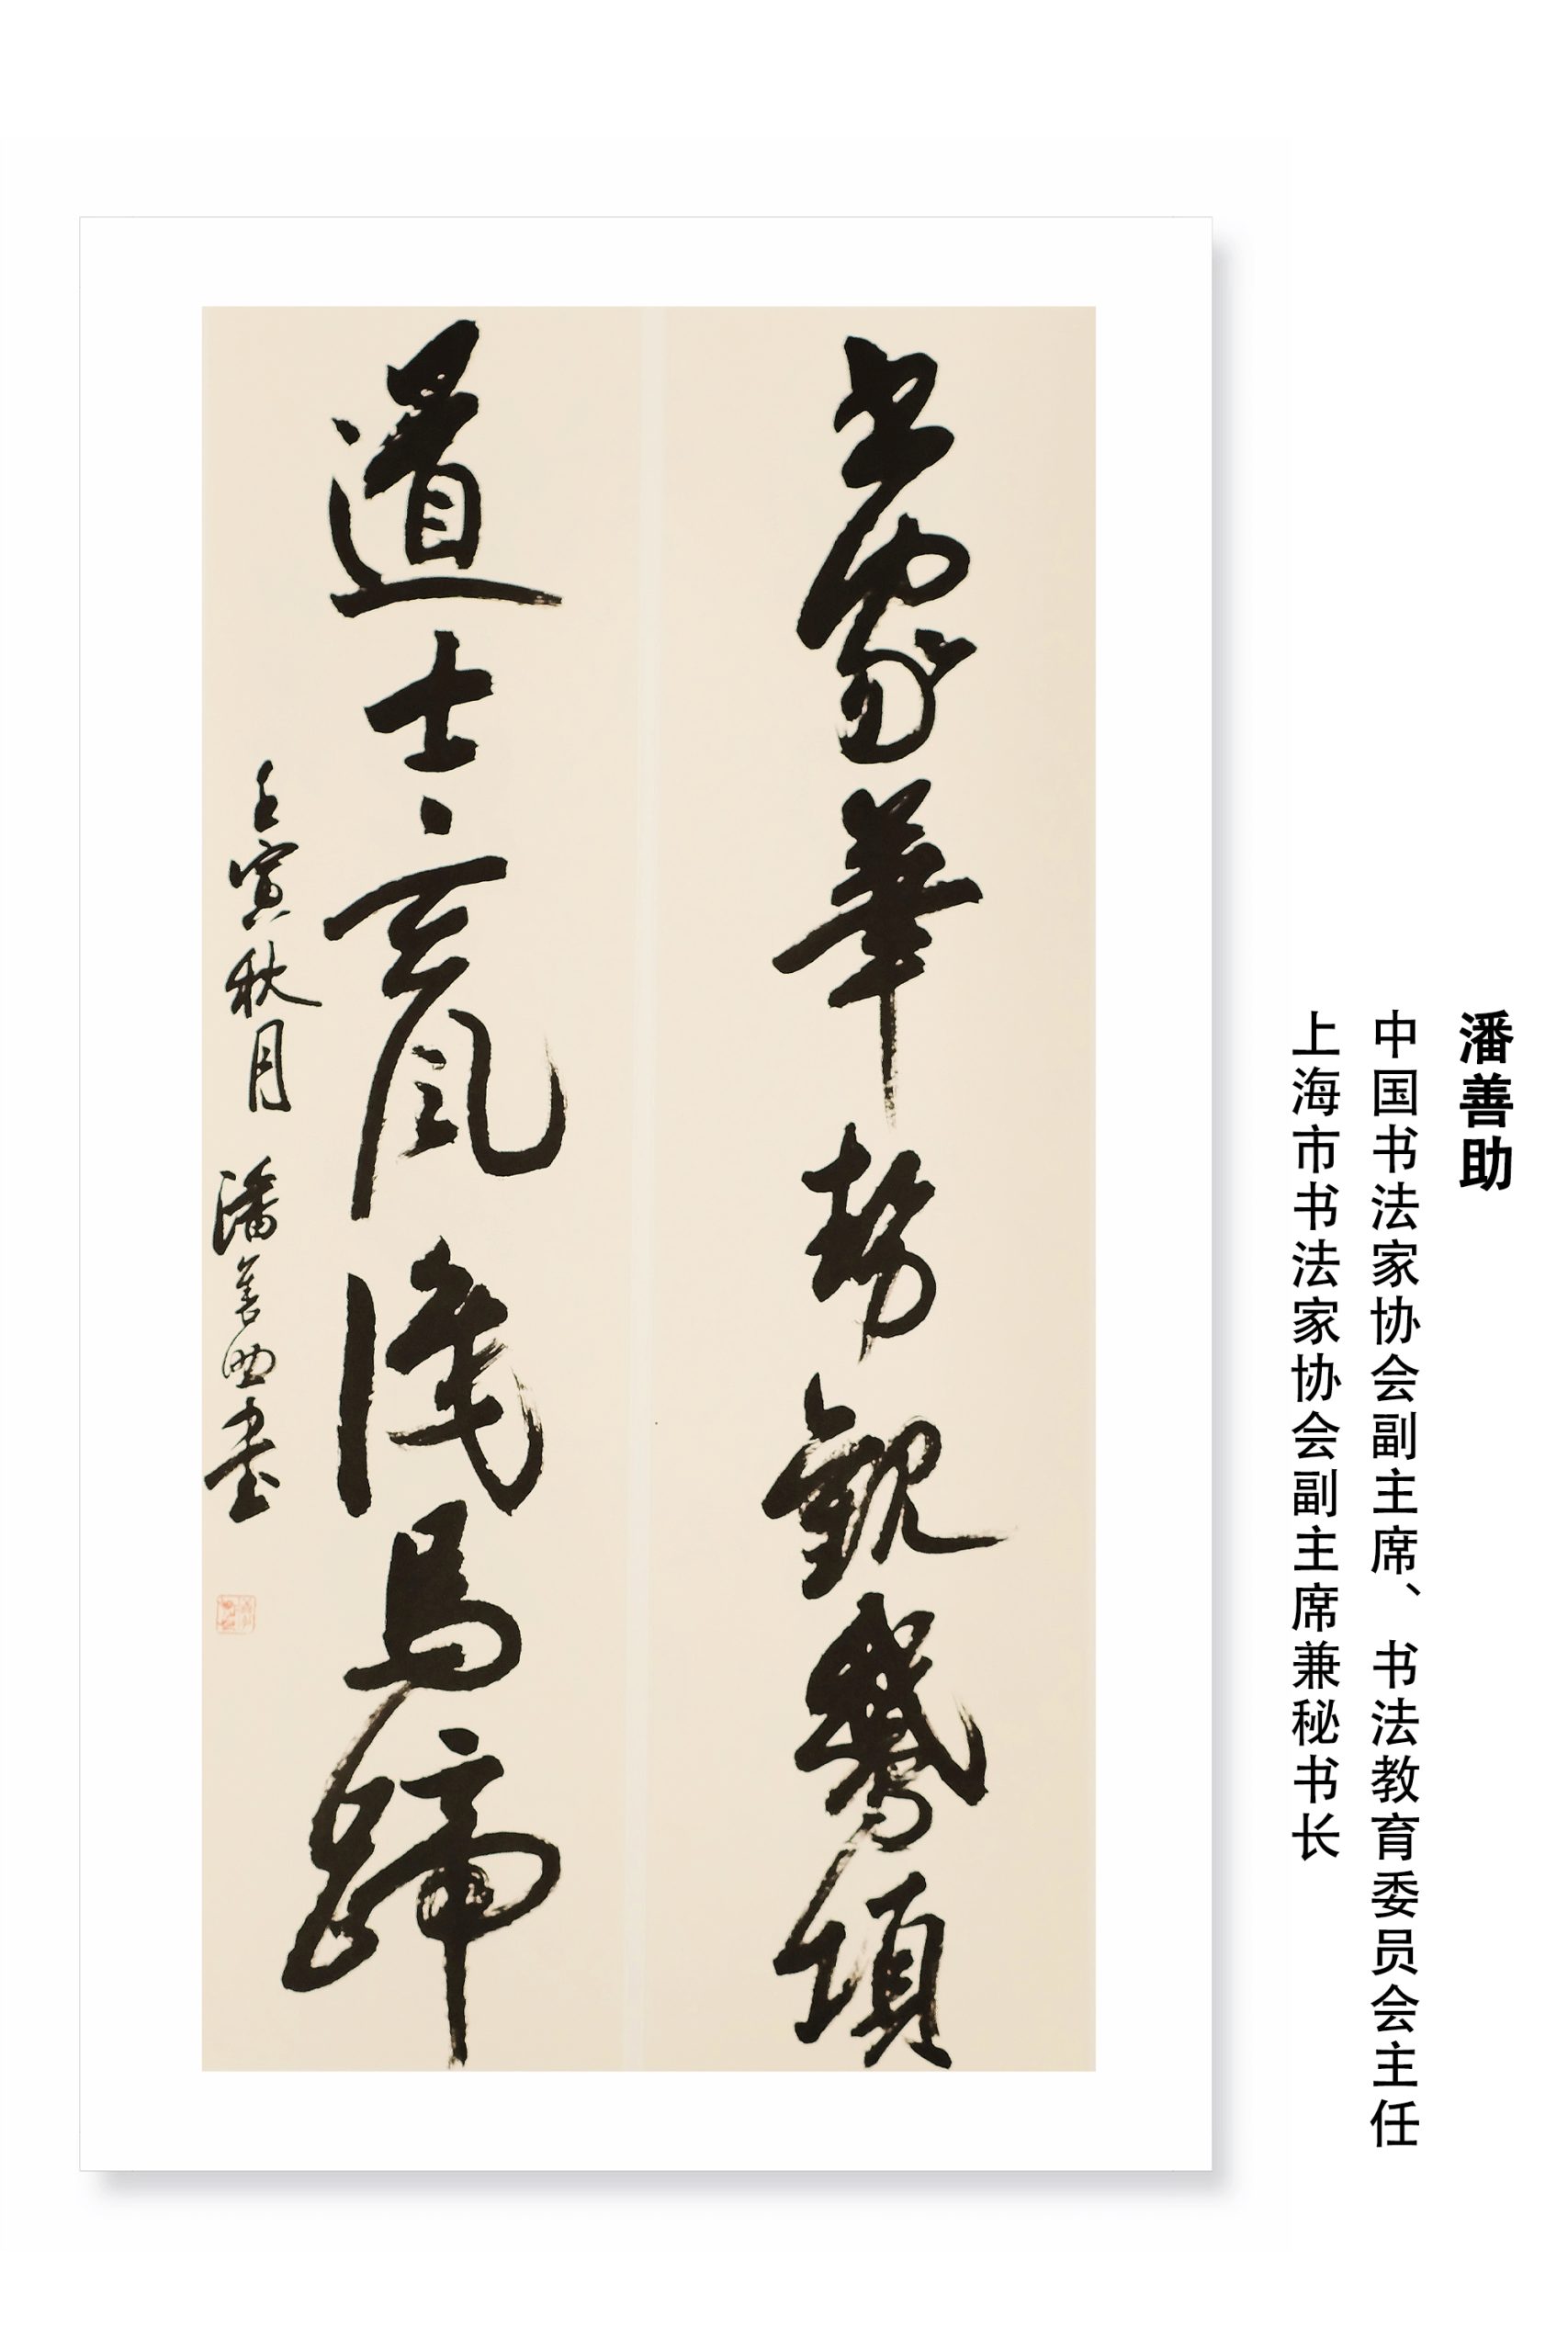 潘善助
中国书法家协会副主席、书法教育委员会主任
上海市书法家协会副主席兼秘书长
书家筆勢觀鵝項
道士玄風識馬蹄
壬寅秋月 潘善助書